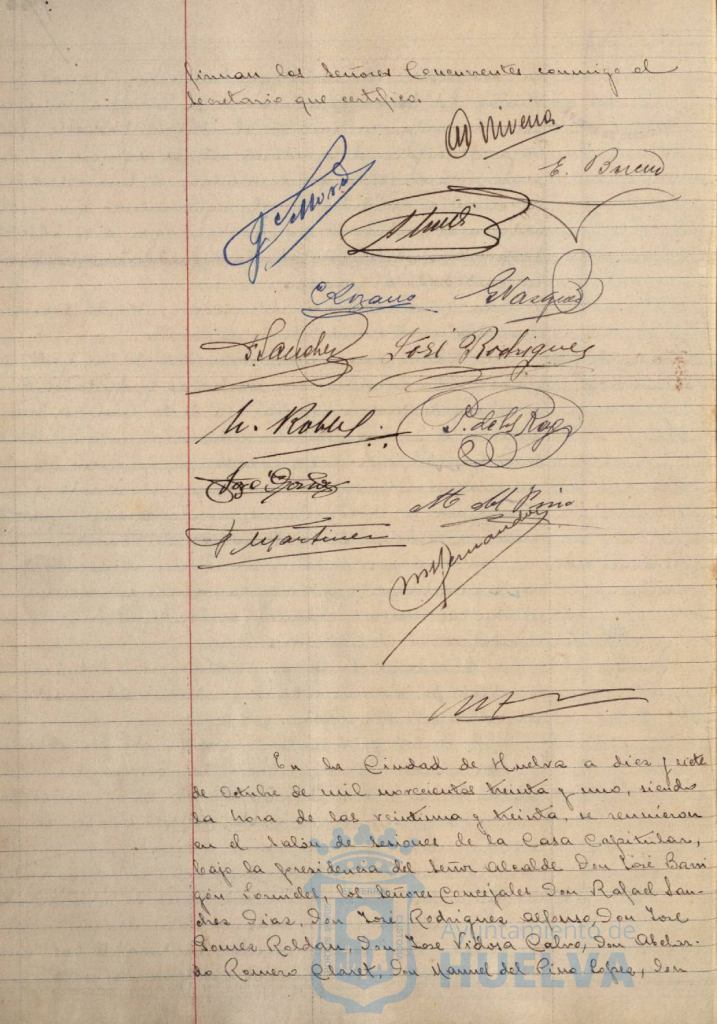 firman los Señores Concurrentes conmigo el
Secretario que certifico.
E.
Lozano Vazquez
F. Sanchez José Rodriguez
M. Robles P. de la
M. del Pino
Martinez
M Hernandez
En la Ciudad de Huelva a diez y siete
de Octubre de mil novecientos treinta y uno, siendo
la hora de las veintiuna y treinta, se reunieron
en el Salón de Sesiones de la Casa Capitular,
bajo la presidencia del Señor Alcalde Don José Barri
gón Fornieles, los Señores Concejales Don Rafael San-
chez Diaz, Don José Rodriguez Alfonso, Don José
Gomez Roldán, Don José Vidosa Calvo, Don Abelar-
do Romero Claret, Don Manuel del Pino Lopez, Don
Ayuntamiento de
HUELVA